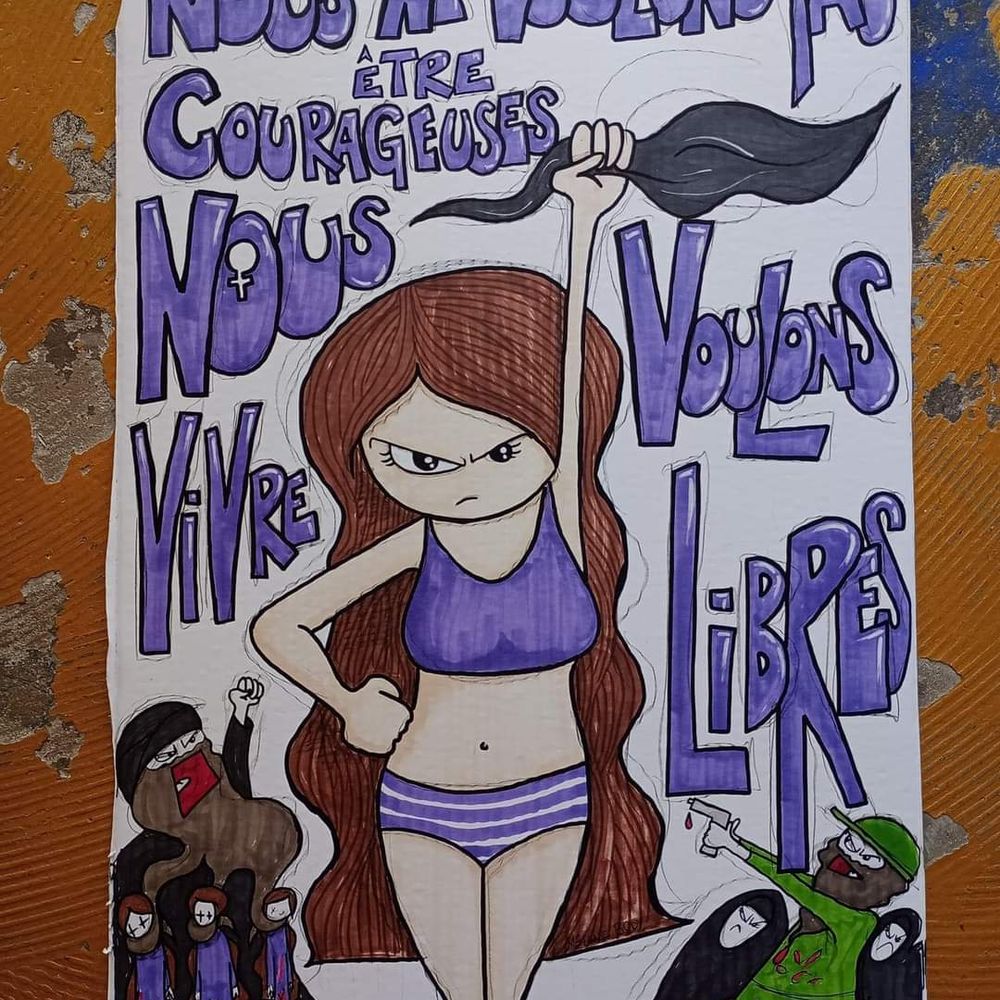 NOUS NE VOULONS PAS
ÊTRE
COURAGEUSES
NOUS VOULONS
ViVRE LiBRES